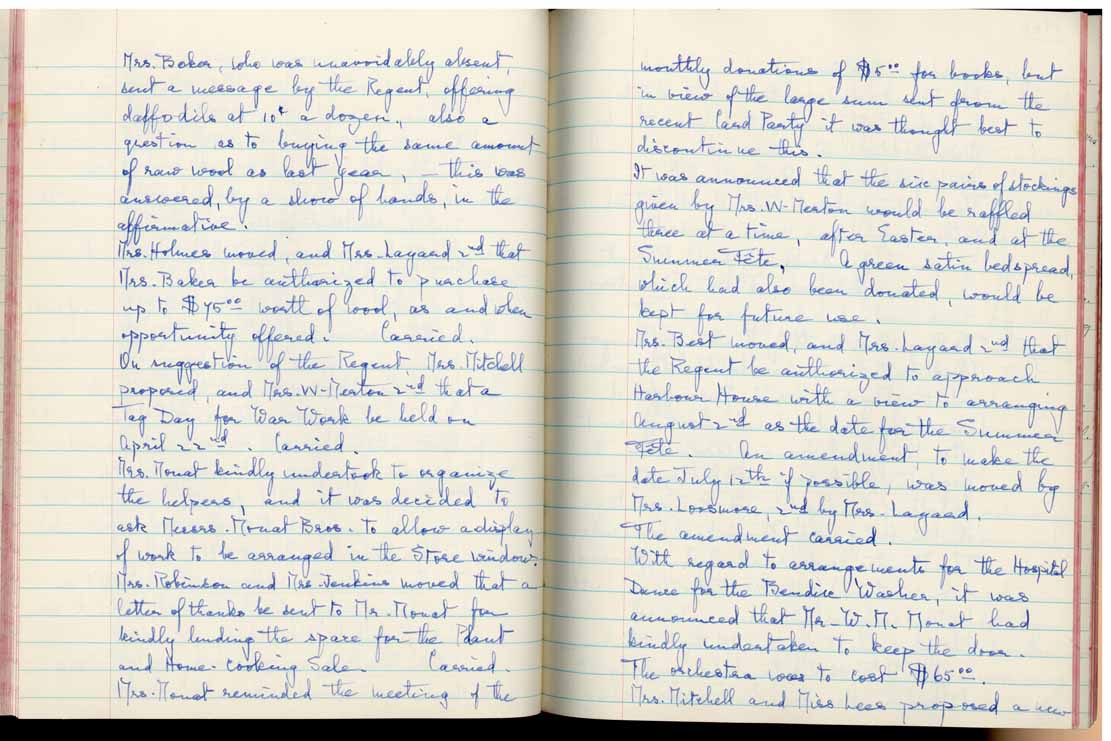 Mrs. Baker, who was unavoidably absent,
sent a message by the Regent, offering
daffodils at 10¢ a dozen., also a
question as to buying the same amount
of raw wool as last year, – this was
answered, by a show of hands, in the
affirmative.
Mrs. Holmes moved, and Mrs. Layard 2nd that
Mrs. Baker be authorized to purchase
up to $75.00 worth of wool, as and when
opportunity offered. Carried.
On suggestion of the Regent, Mrs. Mitchell
proposed, and Mrs. W-Merton 2nd that a
Tag Day for War Work be held on
April 22nd. Carried.
Mrs. Mouat kindly undertook to organize
the helpers, and it was decided to
ask Messrs. Mouat Bros. to allow a display
of work to be arranged in the Store window.
Mrs. Robinson and Mrs. Jenkins moved that a
letter of thanks be sent to Mr. Mouat for
kindly lending the space for the Plant
and Home-cooking Sale. Carried.
Mrs. Mouat reminded the meeting of the
monthly donations of $5.00 for books, but
in view of the large sum sent from the
recent Card Party it was thought best to
discontinue this.
It was announced that the six pairs of stockings
given by Mrs. W-Merton would be raffled
three at a time, after Easter, and at the
Summer Fête. A green satin bedspread,
which had also been donated, would be
kept for future use.
Mrs. Best moved, and Mrs. Layard 2nd that
the Regent be authorized to approach
Harbour House with a view to arranging
August 2nd as the date for the Summer
Fête. An amendment, to make the
date July 12th if possible, was moved by
Mrs. Loosmore, 2nd by Mrs. Layard.
The amendment carried.
With regard to arrangements for the Hospital
Dance for the Bendix Washer, it was
announced that Mr. W. M. Mouat had
kindly undertaken to keep the door.
The orchestra was to cost $65.00.
Mrs. Mitchell and Miss Lees proposed a new